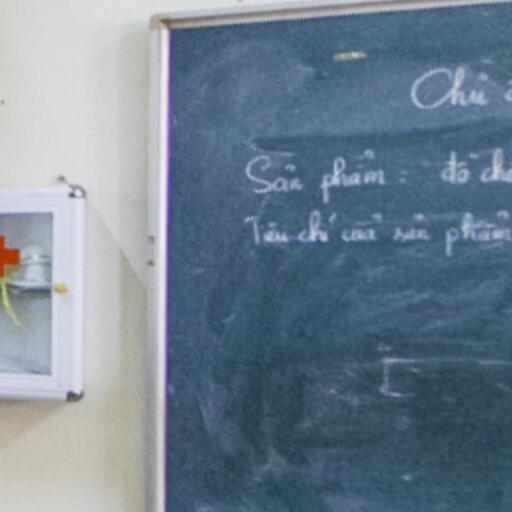 Chủ
Sản phẩm : đồ
Tiêu chí của sản phẩm